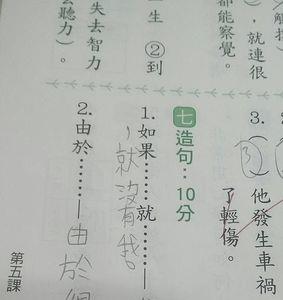 觸
），就連很
都能察覺。
一生 ②到
失去智力
去聽力）。
3.
③
他發生車禍
了輕傷。
七 造句：10分
1. 如果……就……
，就沒有我。
2. 由於……
由於
第五課